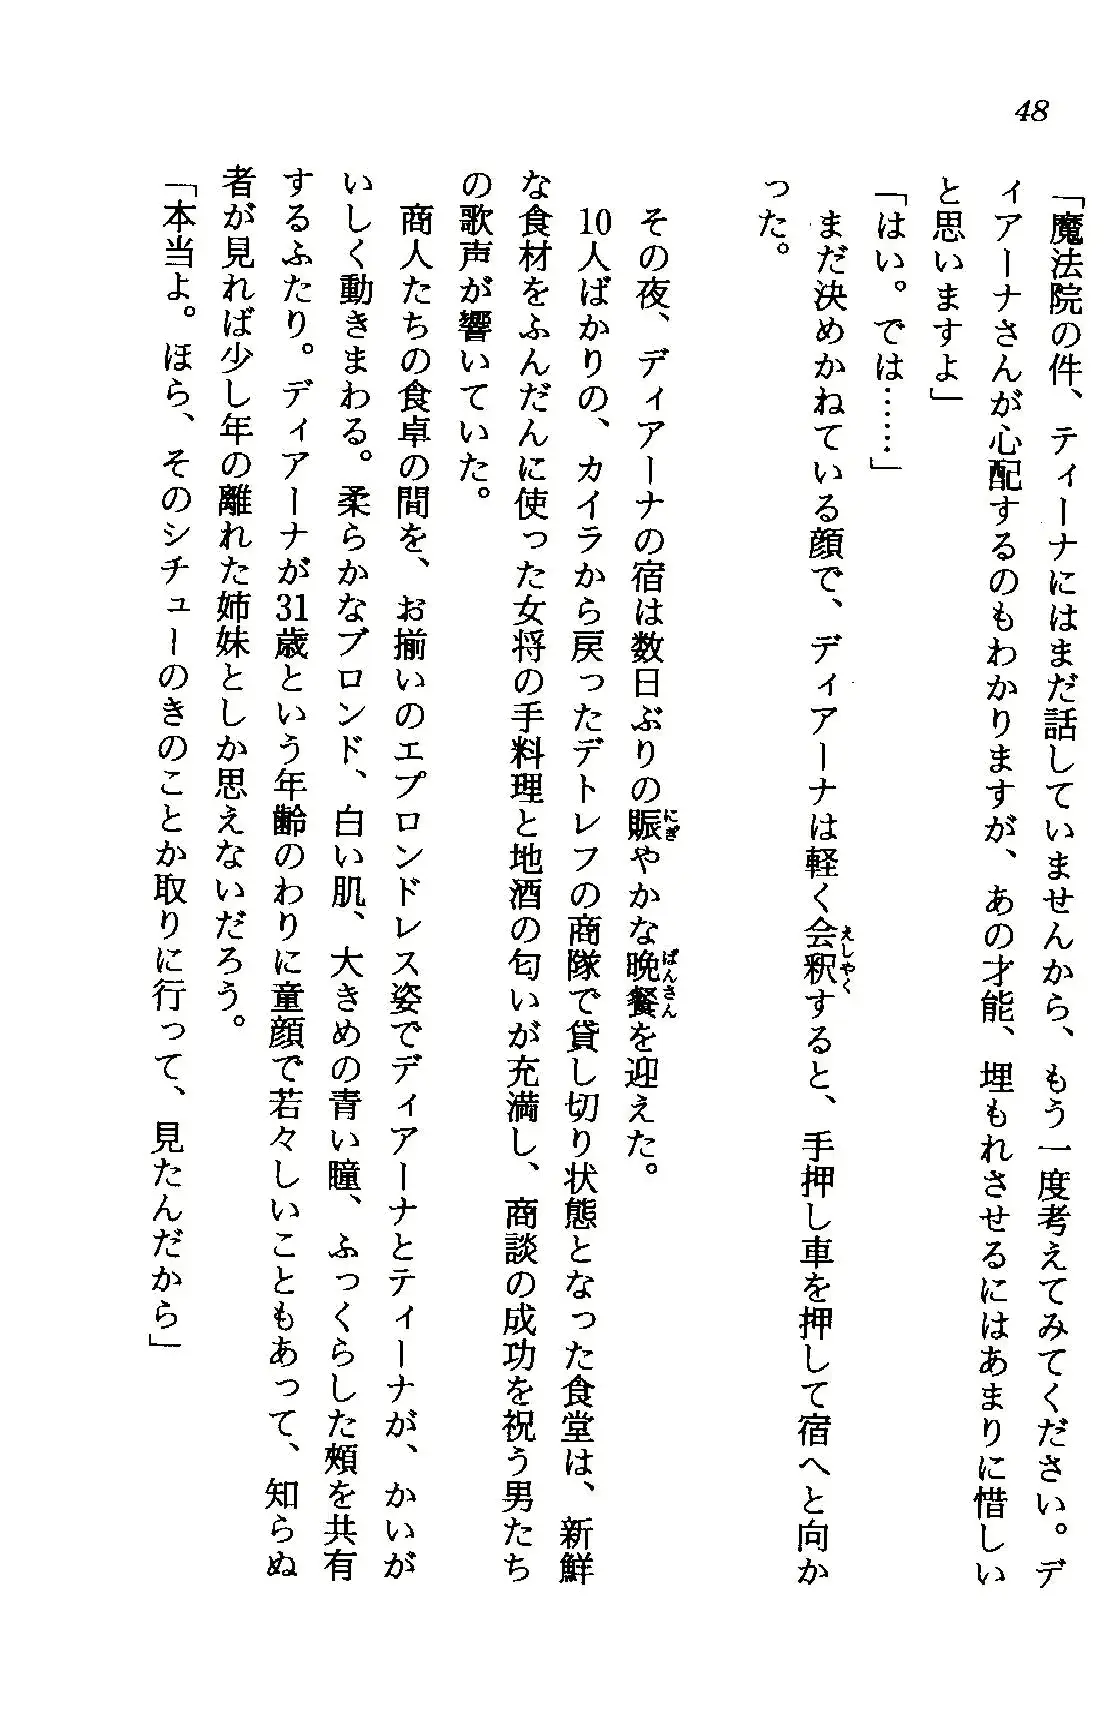 48
「魔法院の件、ティーナにはまだ話していませんから、もう一度考えてみてください。デ
ィアーナさんが心配するのもわかりますが、あの才能、埋もれさせるにはあまりに惜しい
と思いますよ」
「はい。では……」
まだ決めかねている顔で、ディアーナは軽く会釈すると、手押し車を押して宿へと向か
えしやく
った。
その夜、ディアーナの宿は数日ぶりの賑やかな晩餐を迎えた。
にぎ
ばんさん
10人ばかりの、カイラから戻ったデトレフの商隊で貸し切り状態となった食堂は、新鮮
な食材をふんだんに使った女将の手料理と地酒の匂いが充満し、商談の成功を祝う男たち
の歌声が響いていた。
商人たちの食卓の間を、お揃いのエプロンドレス姿でディアーナとティーナが、かいが
いしく動きまわる。柔らかなブロンド、白い肌、大きめの青い瞳、ふっくらした頰を共有
するふたり。ディアーナが31歳という年齢のわりに童顔で若々しいこともあって、知らぬ
者が見れば少し年の離れた姉妹としか思えないだろう。
「本当よ。ほら、そのシチューのきのことか取りに行って、見たんだから」